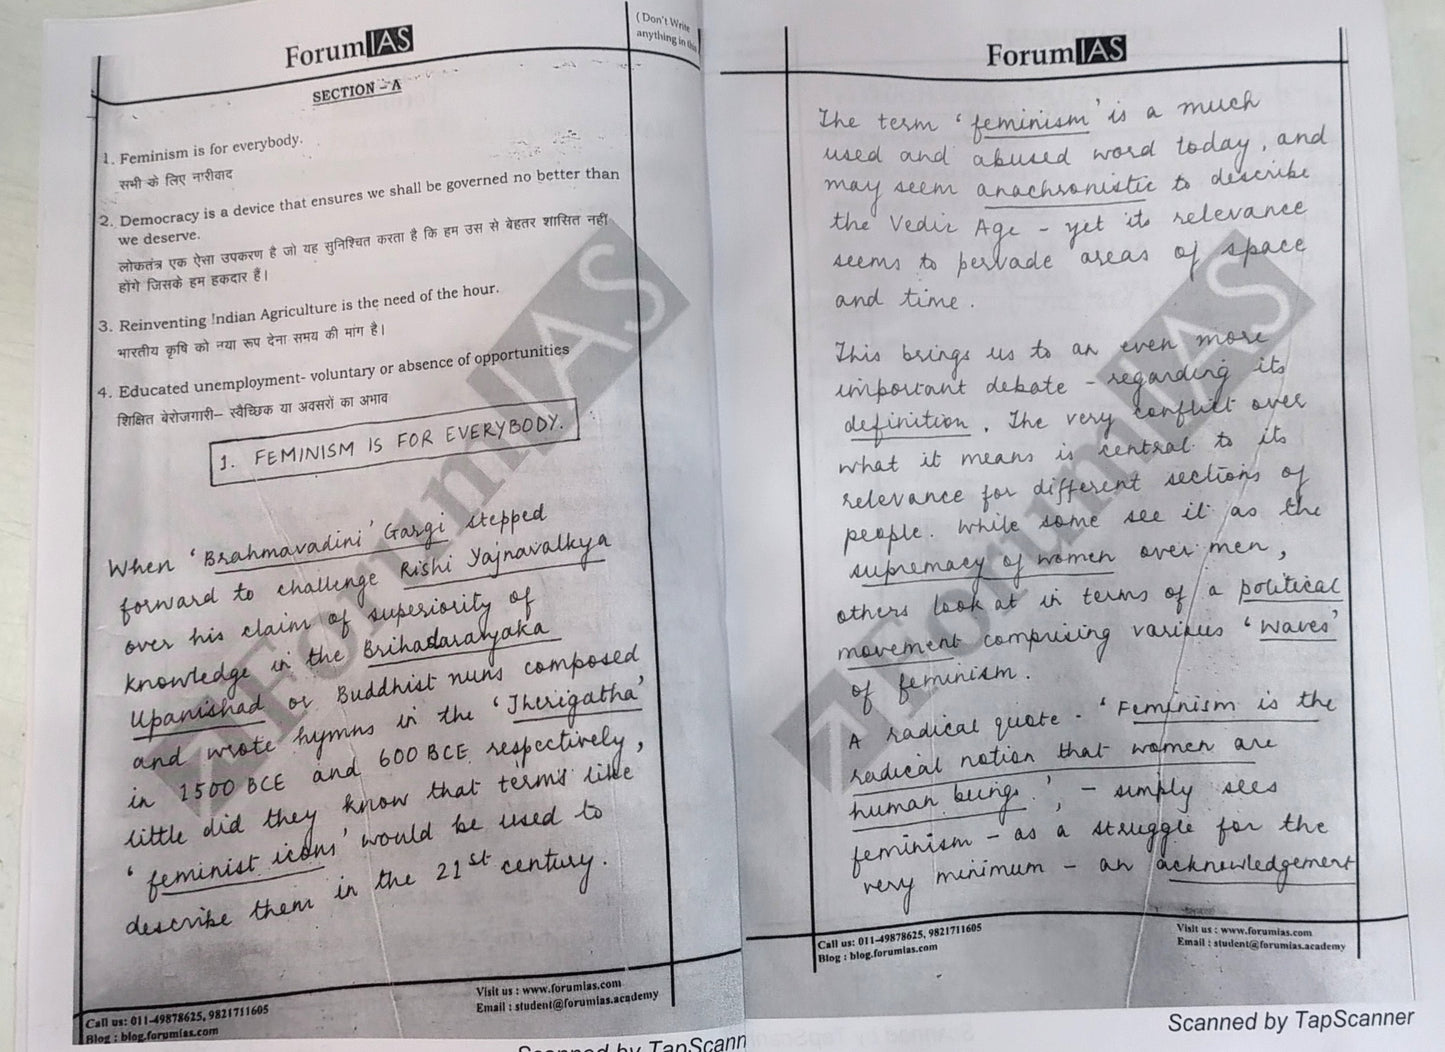 ForumIAS
(Don't Write
anything in this
SECTION - A
1. Feminism is for everybody.
सभी के लिए नारीवाद
2. Democracy is a device that ensures we shall be governed no better than
we deserve.
लोकतंत्र एक ऐसा उपकरण है जो यह सुनिश्चित करता है कि हम उस से बेहतर शासित नहीं
होंगे जिसके हम हकदार हैं।
3. Reinventing Indian Agriculture is the need of the hour.
भारतीय कृषि को नया रूप देना समय की मांग है।
4. Educated unemployment- voluntary or absence of opportunities
शिक्षित बेरोजगारी– स्वैच्छिक या अवसरों का अभाव
1. FEMINISM IS FOR EVERYBODY.
When 'Brahmavadini' Gargi stepped
forward to challenge Rishi Yajnavalkya
over his claim of superiority of
knowledge in the Brihadaranyaka
Upanishad or Buddhist nuns composed
and wrote hymns in the 'Therigatha'
in 1500 BCE and 600 BCE respectively,
little did they know that terms like
'feminist icons' would be used to
describe them in the 21st century.
Call us: 011-49878625, 9821711605
Blog : blog.forumias.com
Visit us : www.forumias.com
Email : student@forumias.academy
Scanned by TapScann
ForumIAS
The term 'feminism' is a much
used and abused word today, and
may seem anachronistic to describe
the Vedic Age - yet its relevance
seems to pervade areas of space
and time.
This brings us to an even more
important debate - regarding its
definition. The very conflict over
what it means is central to its
relevance for different sections of
people. While some see it as the
supremacy of women over men,
others look at in terms of a political
movement comprising various 'waves'
of feminism.
A radical quote - 'Feminism is the
radical notion that women are
human beings.', - simply sees
feminism - as a struggle for the
very minimum - an acknowledgement
Call us: 011-49878625, 9821711605
Blog : blog.forumias.com
Visit us : www.forumias.com
Email : student@forumias.academy
Scanned by TapScanner
ForumIAS
ForumIAS